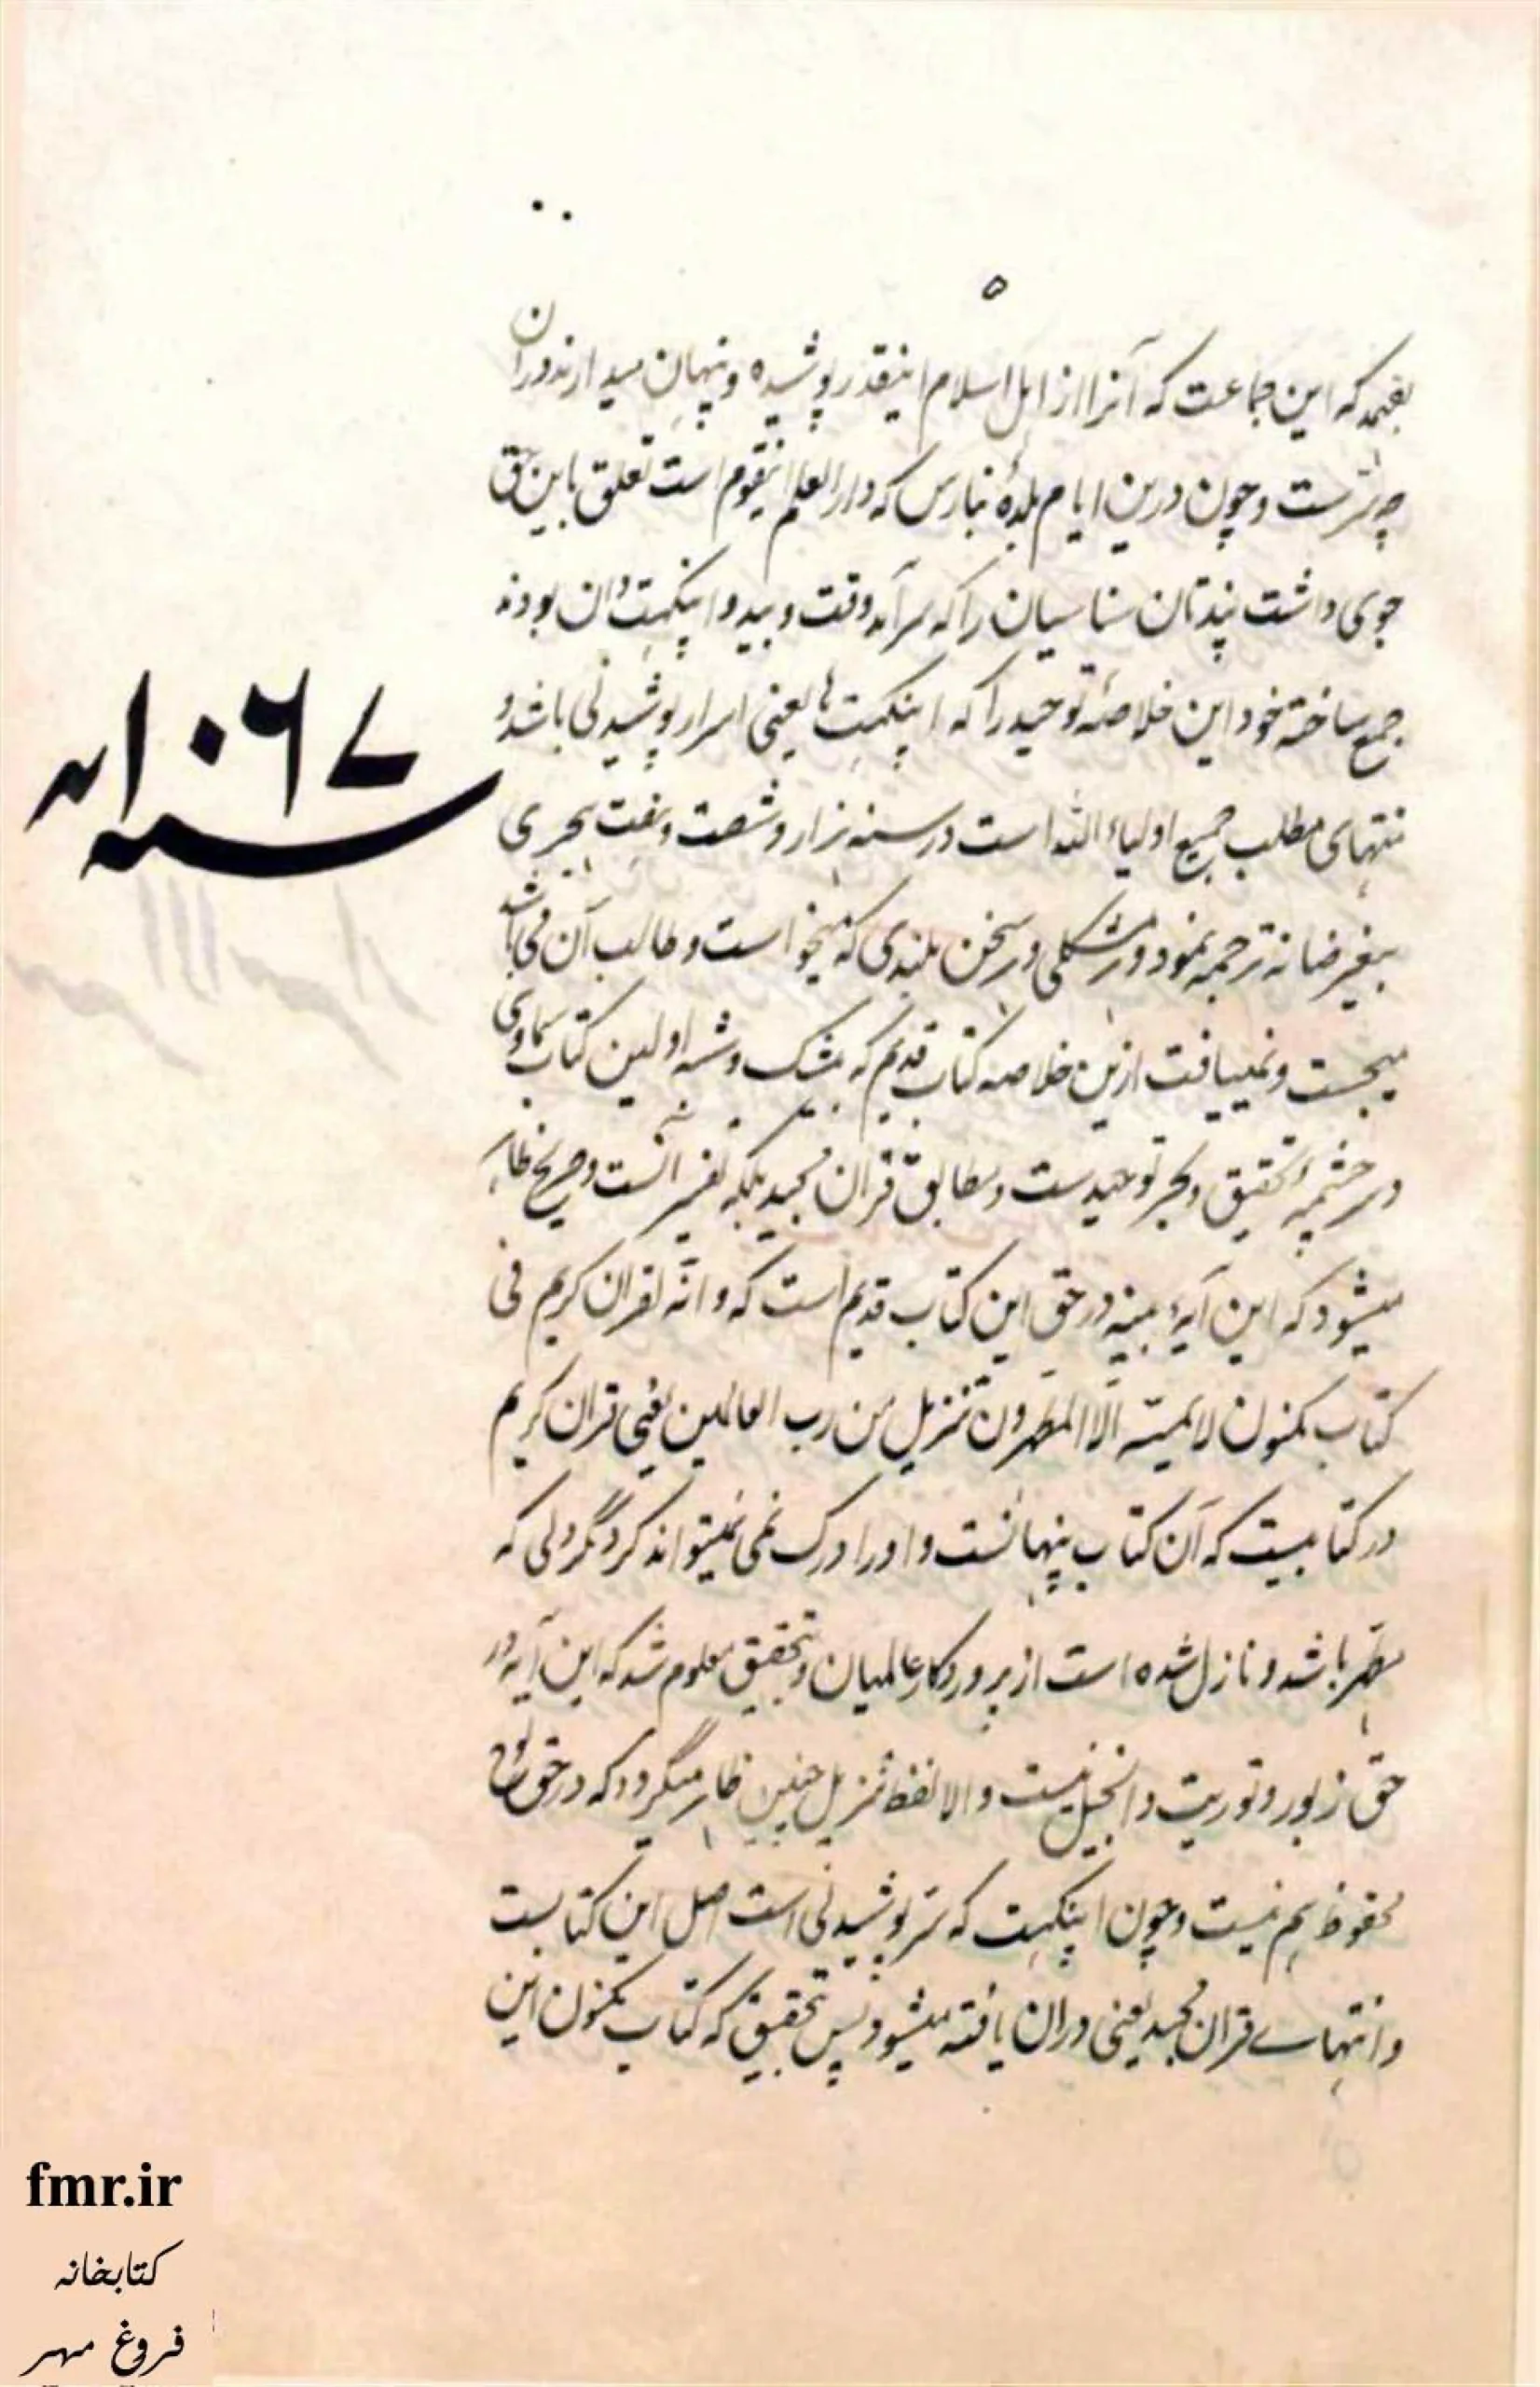 ۵
بفهمد که این جماعت که آنرا از اهل اسلام اینقدر پوشیده و پنهان میدارند در آن
چه سرّست و چون درین ایام بلدهٔ بنارس که دار العلم اینقوم است تعلق باین حق
جوی داشت پندتان سناسیان را که سرآمد وقت و بید و اپنکهت دان بودند
جمع ساخته خود این خلاصهٔ توحید را که اپنکهت ها یعنی اسرار پوشیدنی باشد و
منتهای مطلب جمیع اولیاء الله است در سنه هزار و شصت و هفت هجری
بیغرضانه ترجمه نمود و هر مشکلی و هر سخن بلندی که میخواست و طالب آن می باشد
میجست و نمییافت ازین خلاصه کتاب قدیم که بیشک و شبه اولین کتاب سماوی
و سرچشمهٔ تحقیق و بحر توحیدست و مطابق قران مجید بلکه تفسیر آنست و صریح ظاهر
میشود که این آیه بعینه در حق این کتاب قدیم است که و انّه لقران کریم فی
کتاب مکنون لا یمسه الّا المطهرون تنزیل من رب العالمین یعنی قران کریم
در کتابیست که آن کتاب پنهانست و او را درک نمی نمیتواند کرد مگر دلی که
مطهر باشد و نازل شده است از پروردگار عالمیان و تحقیق معلوم شد که این آیه در
حق زبور و توریت و انجیل نیست و الا لفظ تنزیل چنین ظاهر میگردد که در حق لوح
محفوظ هم نیست و چون اپنکهت که سرّ پوشیدنی است اصل این کتابست
و انتهاے قران مجید یعنی دران یافته میشود پس تحقیق که کتاب مکنون این
سنه ۱۰۶۷
fmr.ir
کتابخانه
فروغ مهر